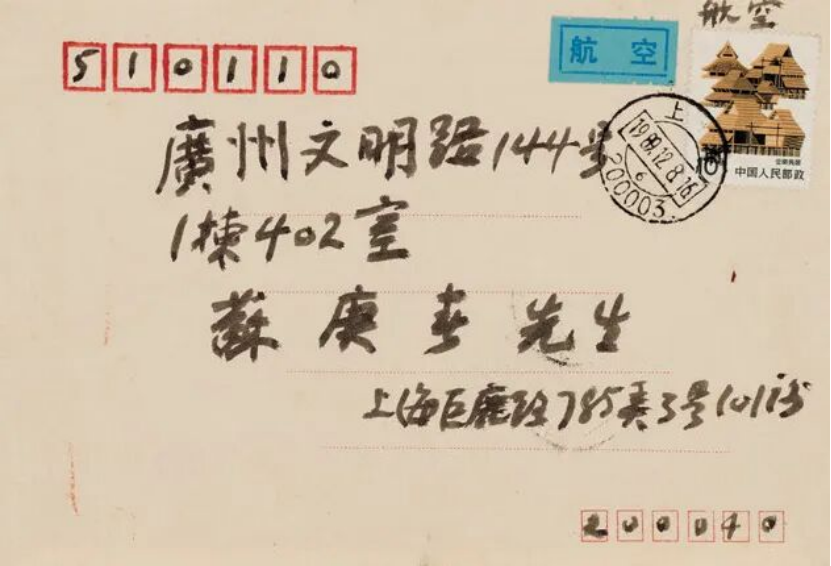 航空
航 空
510110
上
1989.12.8.16
6
200003
云南民居
中国人民邮政
廣州文明路144号
1棟402室
蘇庚春先生
上海巨鹿路785弄3号101
200040